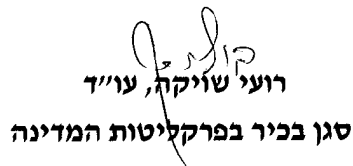 רועי שויקה, עו"ד
סגן בכיר בפרקליטות המדינה